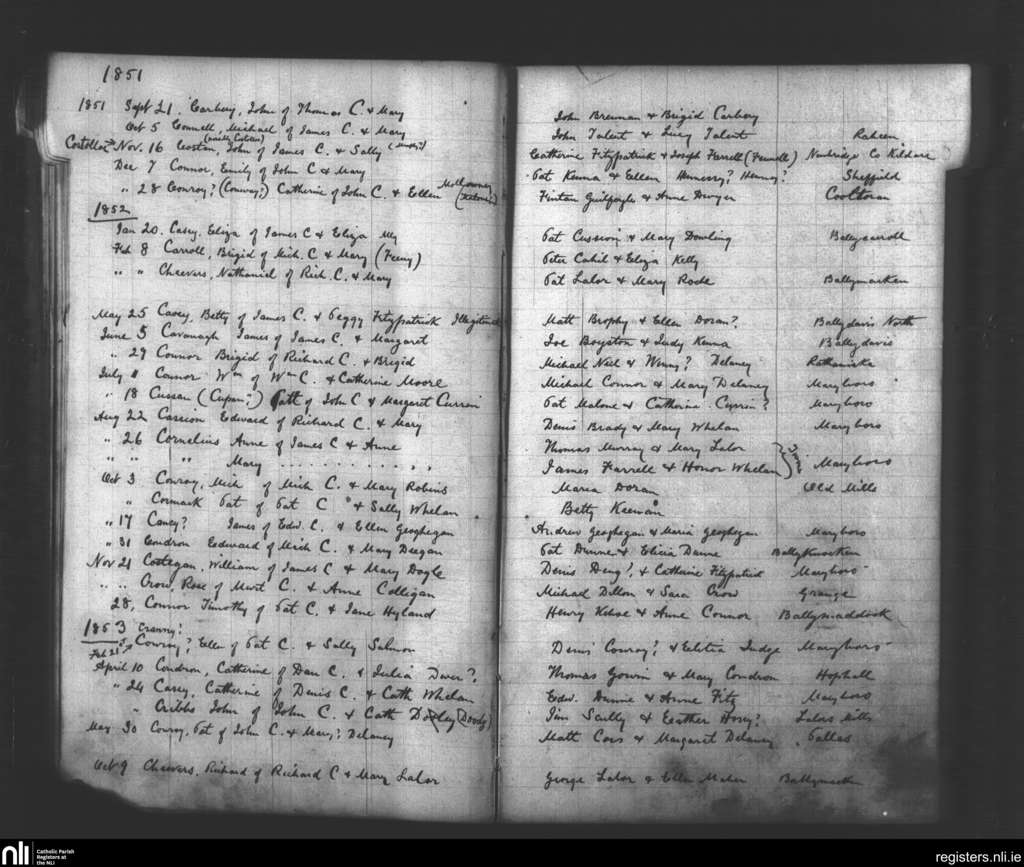 1851
1851 Sept 21. Carbery, John of Thomas C. & Mary John Brennan & Brigid Carbery
Oct 5 Connell, Michael of James C. & Mary John Talent & Lucy Talent Raheen
Nov. 16 Costan, John of James C. & Sally Catherine Fitzpatrick & Joseph Farrell (Fennell) Newbridge Co Kildare
Dec 7 Connor, Emily of John C & Mary Pat Keena & Ellen Hennessy? Henny? Sheffield
" 28 Conroy? (Conway?) Catherine of John C. & Ellen Fintan Guilfoyle & Anne Dwyer Cooltoran
1852
Jan 20. Casey, Eliza of James C & Eliza Pat Cussion & Mary Dowling Ballycarroll
Feb 8 Carroll, Brigid of Mich. C & Mary (Feeny) Peter Cahil & Eliza Kelly
" " Cheevers, Nathaniel of Rich. C. & Mary Pat Lalor & Mary Rode Ballymacken
May 25 Casey, Betty of James C. & Peggy Fitzpatrick Illegitimate Matt Brophy & Ellen Doran? Ballydavis North
June 5 Cavanagh James of James C. & Margaret Joe Boyston & Judy Keena Ballydavis
" 29 Connor Brigid of Richard C. & Brigid Michael Neil & Winny? Delaney
July 11 Connor Wm of Wm C. & Catherine Moore Michael Connor & Mary Delaney Maryboro
" 18 Cussan Patt of John C & Margaret Pat Malone & Catherine Maryboro
Aug 22 Cassion Edward of Richard C. & Mary Denis Brady & Mary Whelan Maryboro
" 26 Cornelius Anne of James C & Anne Thomas Murray & Mary Lalor
" " " Mary James Farrell & Honor Whelan Twins Maryboro
Oct 3 Conroy, Mich of Mich C. & Mary Robins Maria Doran Old Mills
" Cormack Pat of Pat C & Sally Whelan Betty Keewan
" 17 Caney? James of Edw. C. & Ellen Geoghegan Andrew Geoghegan & Maria Geoghegan Maryboro
" 31 Condron Edward of Mich C. & Mary Deegan Pat Dunne & Elicia Dunne Ballyknocken
Nov 21 Costegan, William of James C & Mary Doyle Denis & Catherine Fitzpatrick Maryboro
" " Crow, Rose of Murt C. & Anne Colligan Michael Dillon & Sara Crow Grange
28, Connor Timothy of Pat C. & Jane Hyland Henry Kehoe & Anne Connor Ballymaddock
1853
Feb 21st Conroy? Ellen of Pat C. & Sally Salmon Denis Conroy? & Judge Maryboro
April 10 Condron, Catherine of Dan C. & Julia Dwer? Thomas Gowin & Mary Condron Hophall
" 24 Casey, Catherine of Denis C. & Cath Whelan Edw. Dunne & Anne Fitz Maryboro
" Cribbs John of John C. & Cath (Doody) Jim Scully & Easther Hosey? Lalors Mills
May 30 Conroy, Pat of John C. & Mary? Delaney Matt Coss & Margaret Delaney Pallas
Oct 9 Cheevers, Richard of Richard C & Mary Lalor George Lalor & Ellen Maher Ballymacken
nli Catholic Parish
Registers at
the NLI
registers.nli.ie